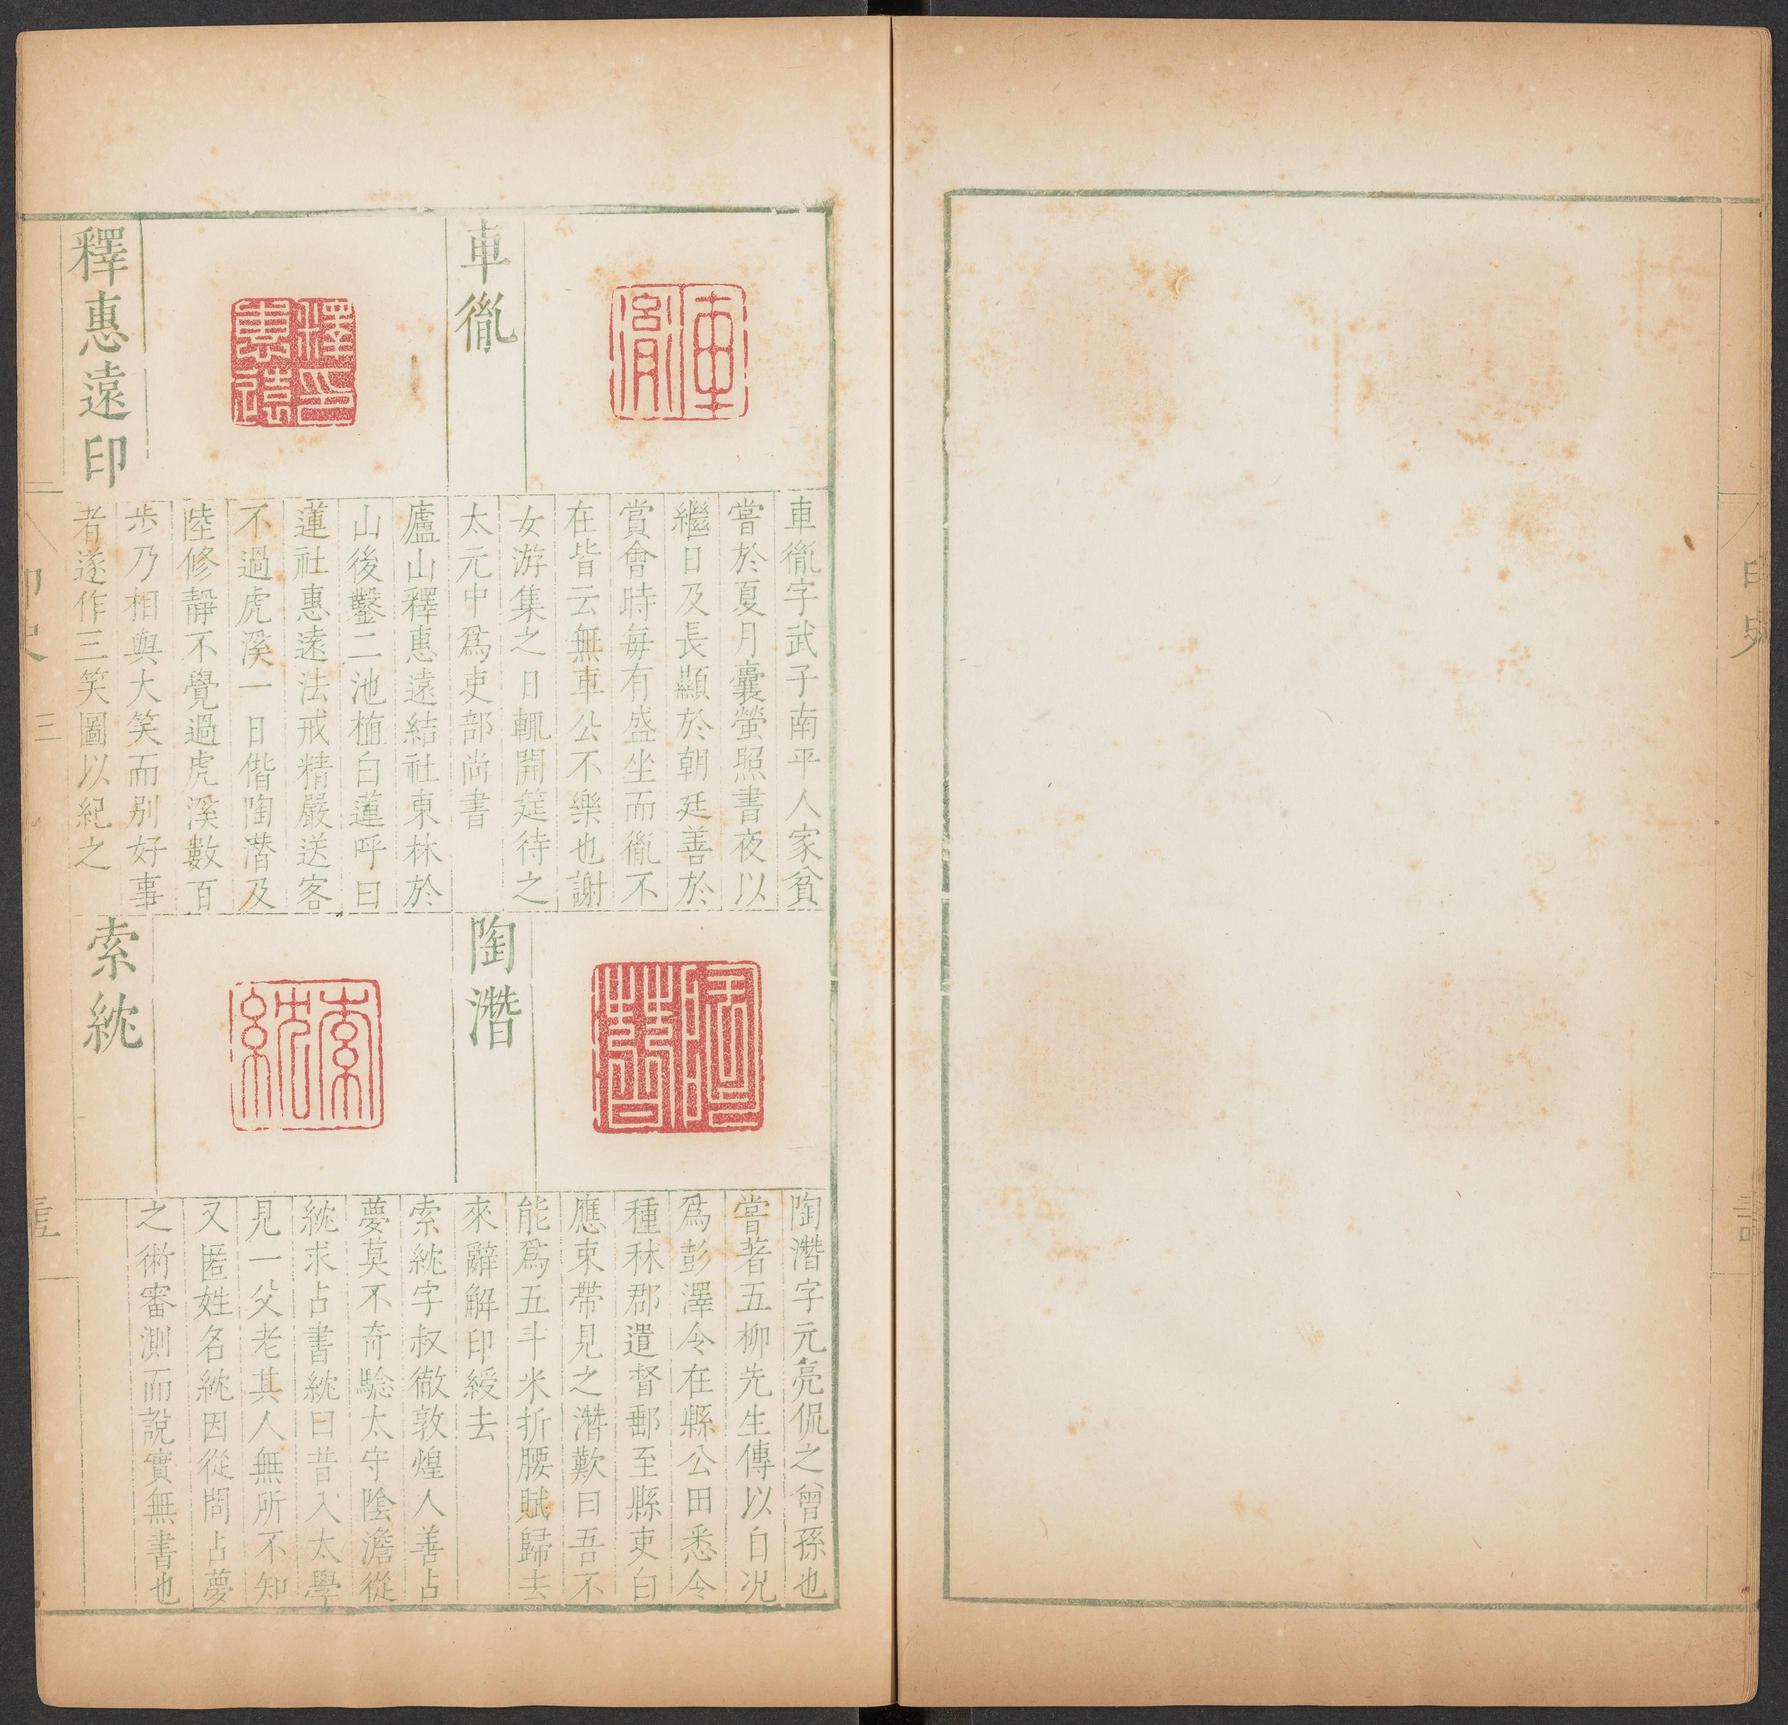 車胤
車胤字武子南平人家貧
嘗於夏月囊螢照書夜以
繼日及長顯於朝廷善於
賞會時每有盛坐而胤不
在皆云無車公不樂也謝
女游集之日輒開筵待之
太元中爲吏部尚書
釋惠遠印
廬山釋惠遠結社東林於
山後鑿二池植白蓮呼曰
蓮社惠遠法戒精嚴送客
不過虎溪一日偕陶潛及
陸修靜不覺過虎溪數百
步乃相與大笑而別好事
者遂作三笑圖以紀之
陶潛
陶潛字元亮侃之曾孫也
嘗著五柳先生傳以自況
爲彭澤令在縣公田悉令
種秫郡遣督郵至縣吏白
應束帶見之潛歎曰吾不
能爲五斗米折腰賦歸去
來辭解印綬去
索紞
索紞字叔徹敦煌人善占
夢莫不奇驗太守陰澹從
紞求占書紞曰昔入太學
見一父老其人無所不知
又匿姓名紞因從問占夢
之術審測而說實無書也
印史 三